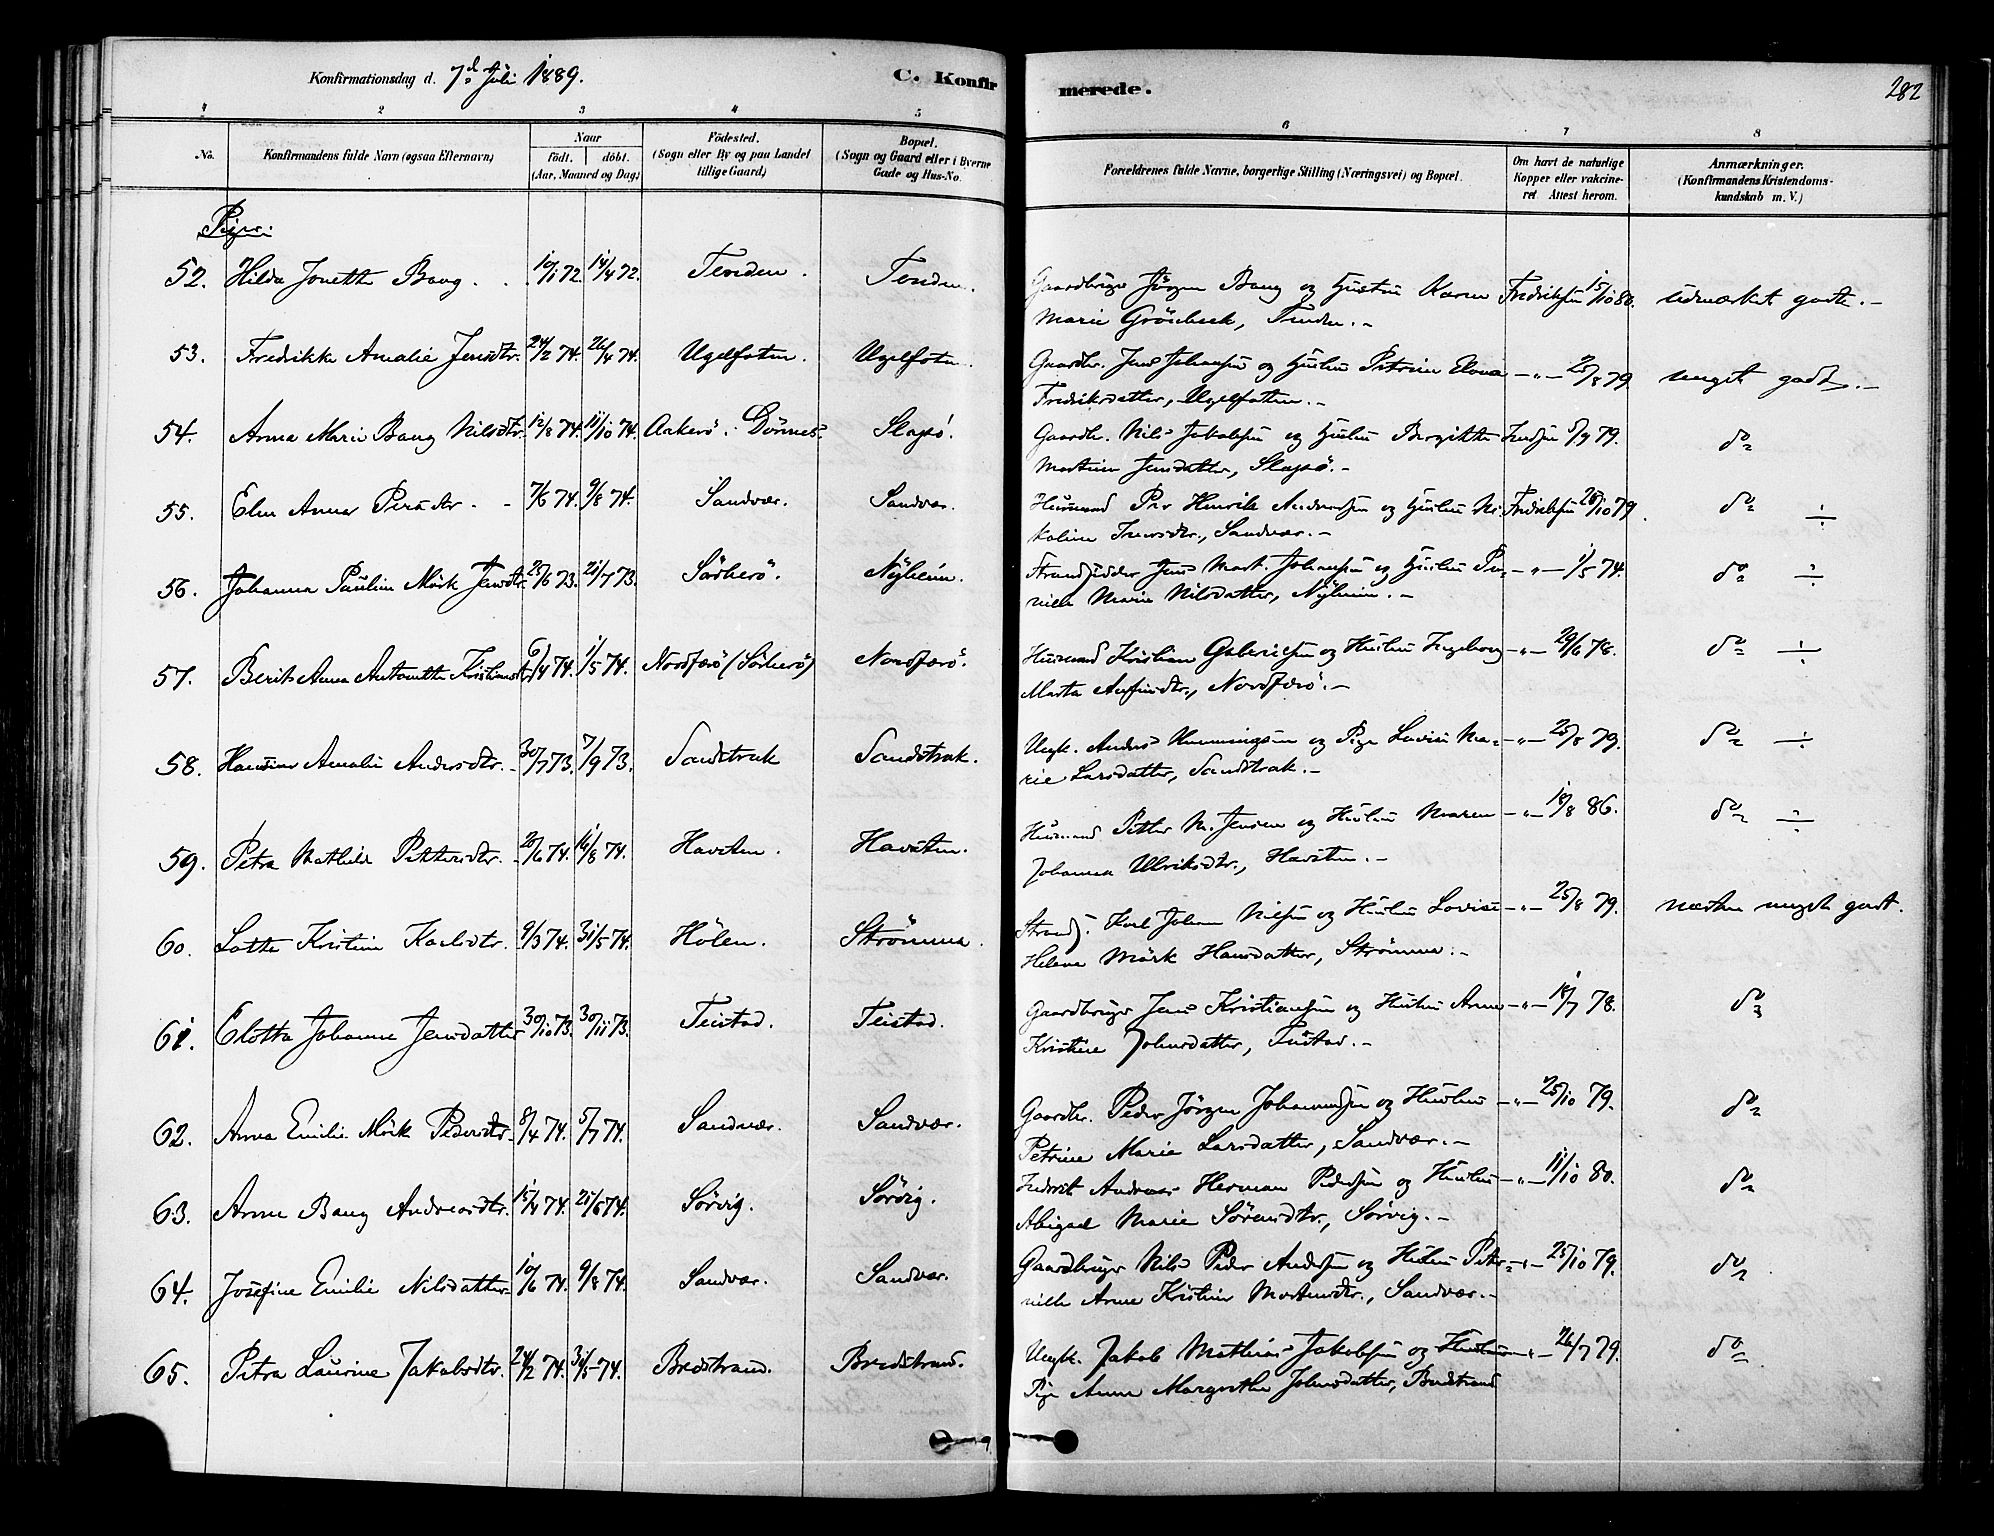 Konfirmationsdag d. 7de Juli 1889.
C. Konfirmerede.
282
1 2 3 4 5 6 7 8
No. Konfirmandens fulde Navn (ogsaa Efternavn) Naar födt. döbt. (Aar, Maaned og Dag) Födested. (Sogn eller By og paa Landet tillige Gaard) Bopæl. (Sogn og Gaard eller i Byerne Gade og Hus-No. Forældrenes fulde Navne, borgerlige Stilling (Næringsvei) og Bopæl. Om havt de naturlige Kopper eller vakcineret Attest herom. Anmærkninger. (Konfirmandens Kristendomskundskab m. V.)
Piger:
52. Hilda Jonette Bang. 10/1 72. 14/4 72. Tenden. Tenden. Gaardbruger Jörgen Bang og Hustru Karen Fredriksen 15/10 80. udmærket godt. -
Marie Grönbeck, Tenden. -
53. Fredrikke Amalie Jensdtr. 24/2 74. 26/4 74. Ugelfoten. Ugelfoten. Gaardbr. Jens Johansen og Hustru Petrine Elena -"- 25/8 79. meget godt. -
Fredriksdatter, Ugelfoten. -
54. Anna Marie Bang Nilsdtr. 12/8 74. 11/10 74. Aakerö, Dönnes. Slapö. Gaardbr. Nils Jakobsen og Hustru Bergitte 79. do
Martine Jensdatter, Slapö. -
55. Elen Anna Persdtr. 7/6 74. 9/8 74. Sandvær. Sandvær. Husmand Per Henrik Andersen og Hustru Ni- Fredriksen 26/10 79. do ÷
koline Iversdtr., Sandvær. -
56. Johanna Pauline Mörk Jensdtr. 25/6 73. 21/7 73. Sörherö. Nyheim. Strandsidder Jens Mart. Johansen og Hustru Per- -"- 1/5 74. do ÷
nille Marie Nilsdatter, Nyheim. -
57. Berit Anna Antonette Kristiansdtr. 6/4 74. 1/5 74. Nordfærö (Sörherö) Nordfærö. Husmand Kristian Gabrielsen og Hustru Ingeborg -"- 29/6 78. do ÷
Marta Anfinsdtr., Nordfærö. -
58. Hansine Amalie Andersdtr. 30/7 73. 7/9 73. Sandstrak Sandstrak. Ungk. Anders Hemmingsen og Pige Lovise Ma- -"- 25/8 79. do ÷
rie Larsdatter, Sandstrak. -
59. Petra Mathilde Pettersdtr. 20/6 74. 16/8 74. Havsten. Havsten. Husmand Petter M. Jensen og Hustru Maren -"- 18/8 86. do ÷
Johanna Ulriksdtr., Havsten. -
60. Lotte Kristine Karlsdtr. 9/3 74. 31/5 74. Hölen. Strömmen. Strands. Karl Johan Nilsen og Hustru Lovise -"- 25/8 79. næsten meget godt.
Helena Mörk Hansdatter, Strömmen. -
61. Elotta Johanne Jensdatter 30/10 73. 30/11 73. Teistad. Teistad. Gaardbruger Jens Kristiansen og Hustru Anne -"- 18/7 78. do
Kristine Johnsdatter, Teistad. -
62. Anna Emilie Mörk Pedersdtr. 8/4 74. 5/7 74. Sandvær. Sandvær. Gaardbr. Peder Jörgen Johannesen og Hustru -"- 25/10 79. do
Petrine Marie Larsdatter, Sandvær. -
63. Anne Bang Andreasdtr. 15/4 74. 21/6 74. Sörvig. Sörvig. Inderst Andreas Herman Pedersen og Hustru -"- 11/10 80. do
Abigael Marie Sörensdtr., Sörvig. -
64. Josefine Emilie Nilsdatter 10/6 74. 9/8 74. Sandvær. Sandvær. Gaardbruger Nils Peder Andersen og Hustru Peter- -"- 25/10 79. do
nille Anne Kristine Mortensdtr., Sandvær. -
65. Petra Laurine Jakobsdtr. 24/2 74. 31/5 74. Bredstrand. Bredstrand. Ungk. Jakob Mathias Jakobsen og Hustru -"- 26/7 79. do
Pige Anne Margrethe Johnsdatter, Bredstrand